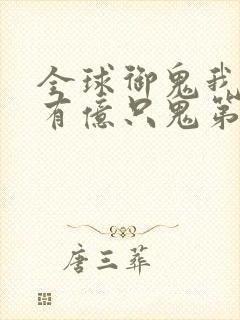 全球御鬼我
有億只鬼第
唐三葬